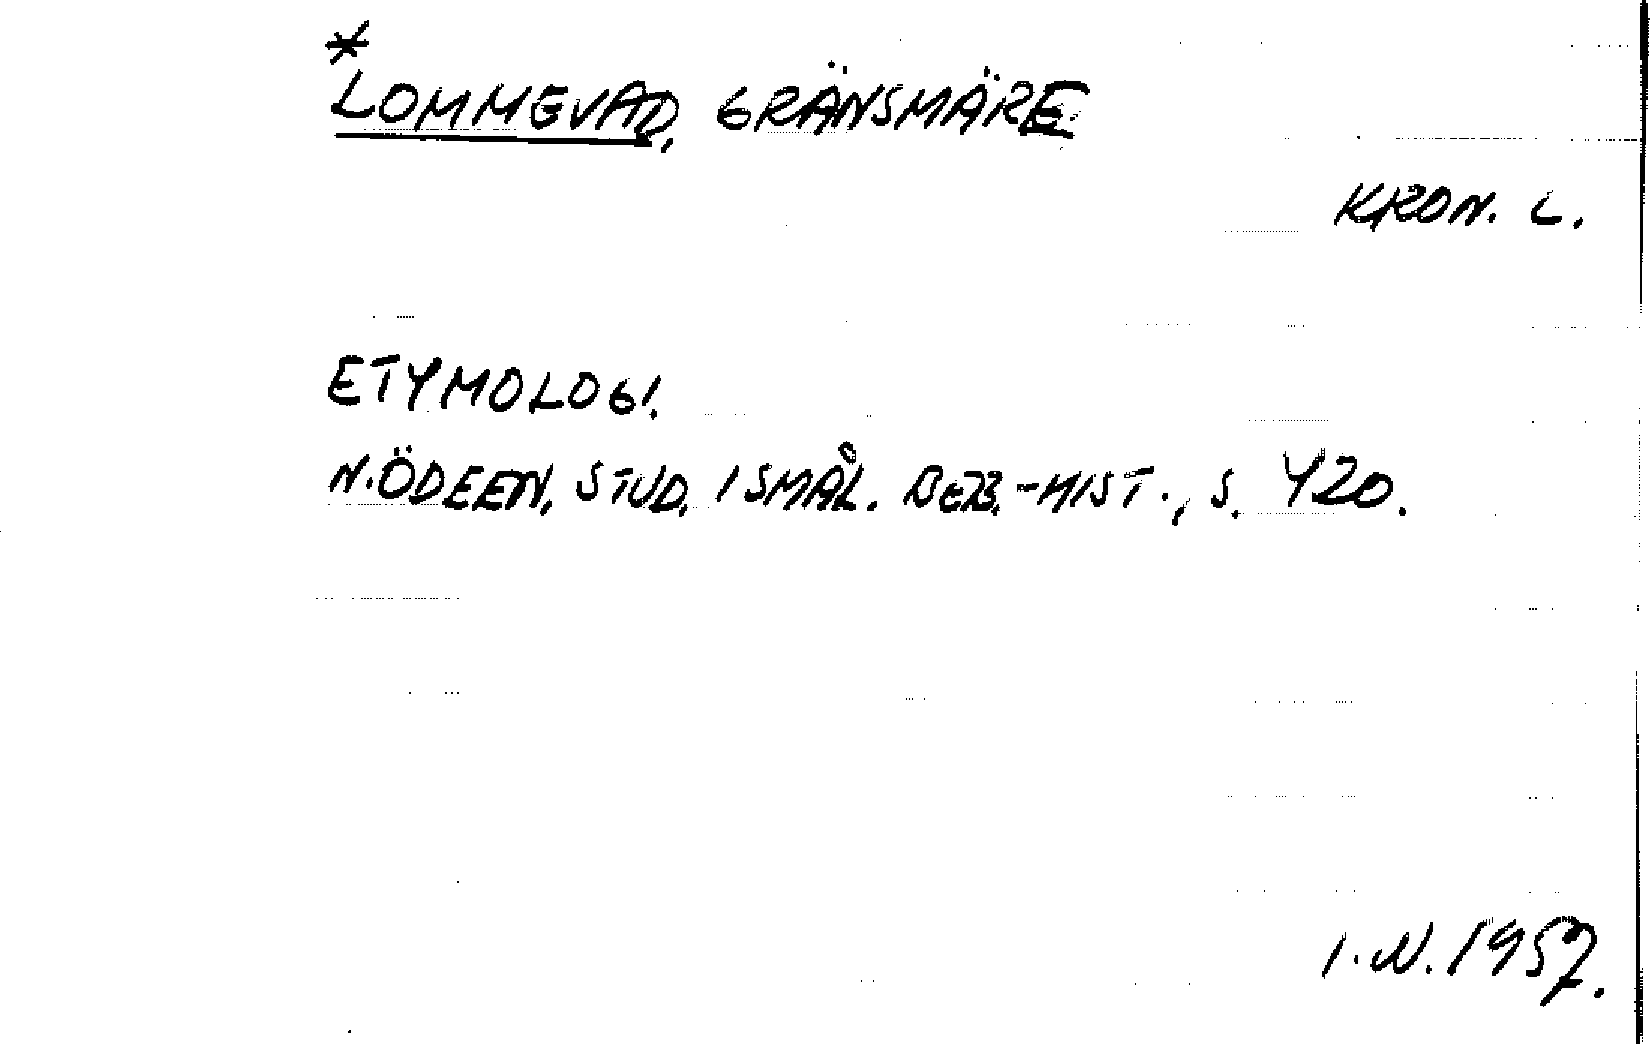 *
LOMMEVAD, GRÄNSMÄRE
KRON. L.
ETYMOLOGI.
N. ÖDEEN, STUD. I SMÅL. BEB.-HIST., S. 420.
I. N. 1957.